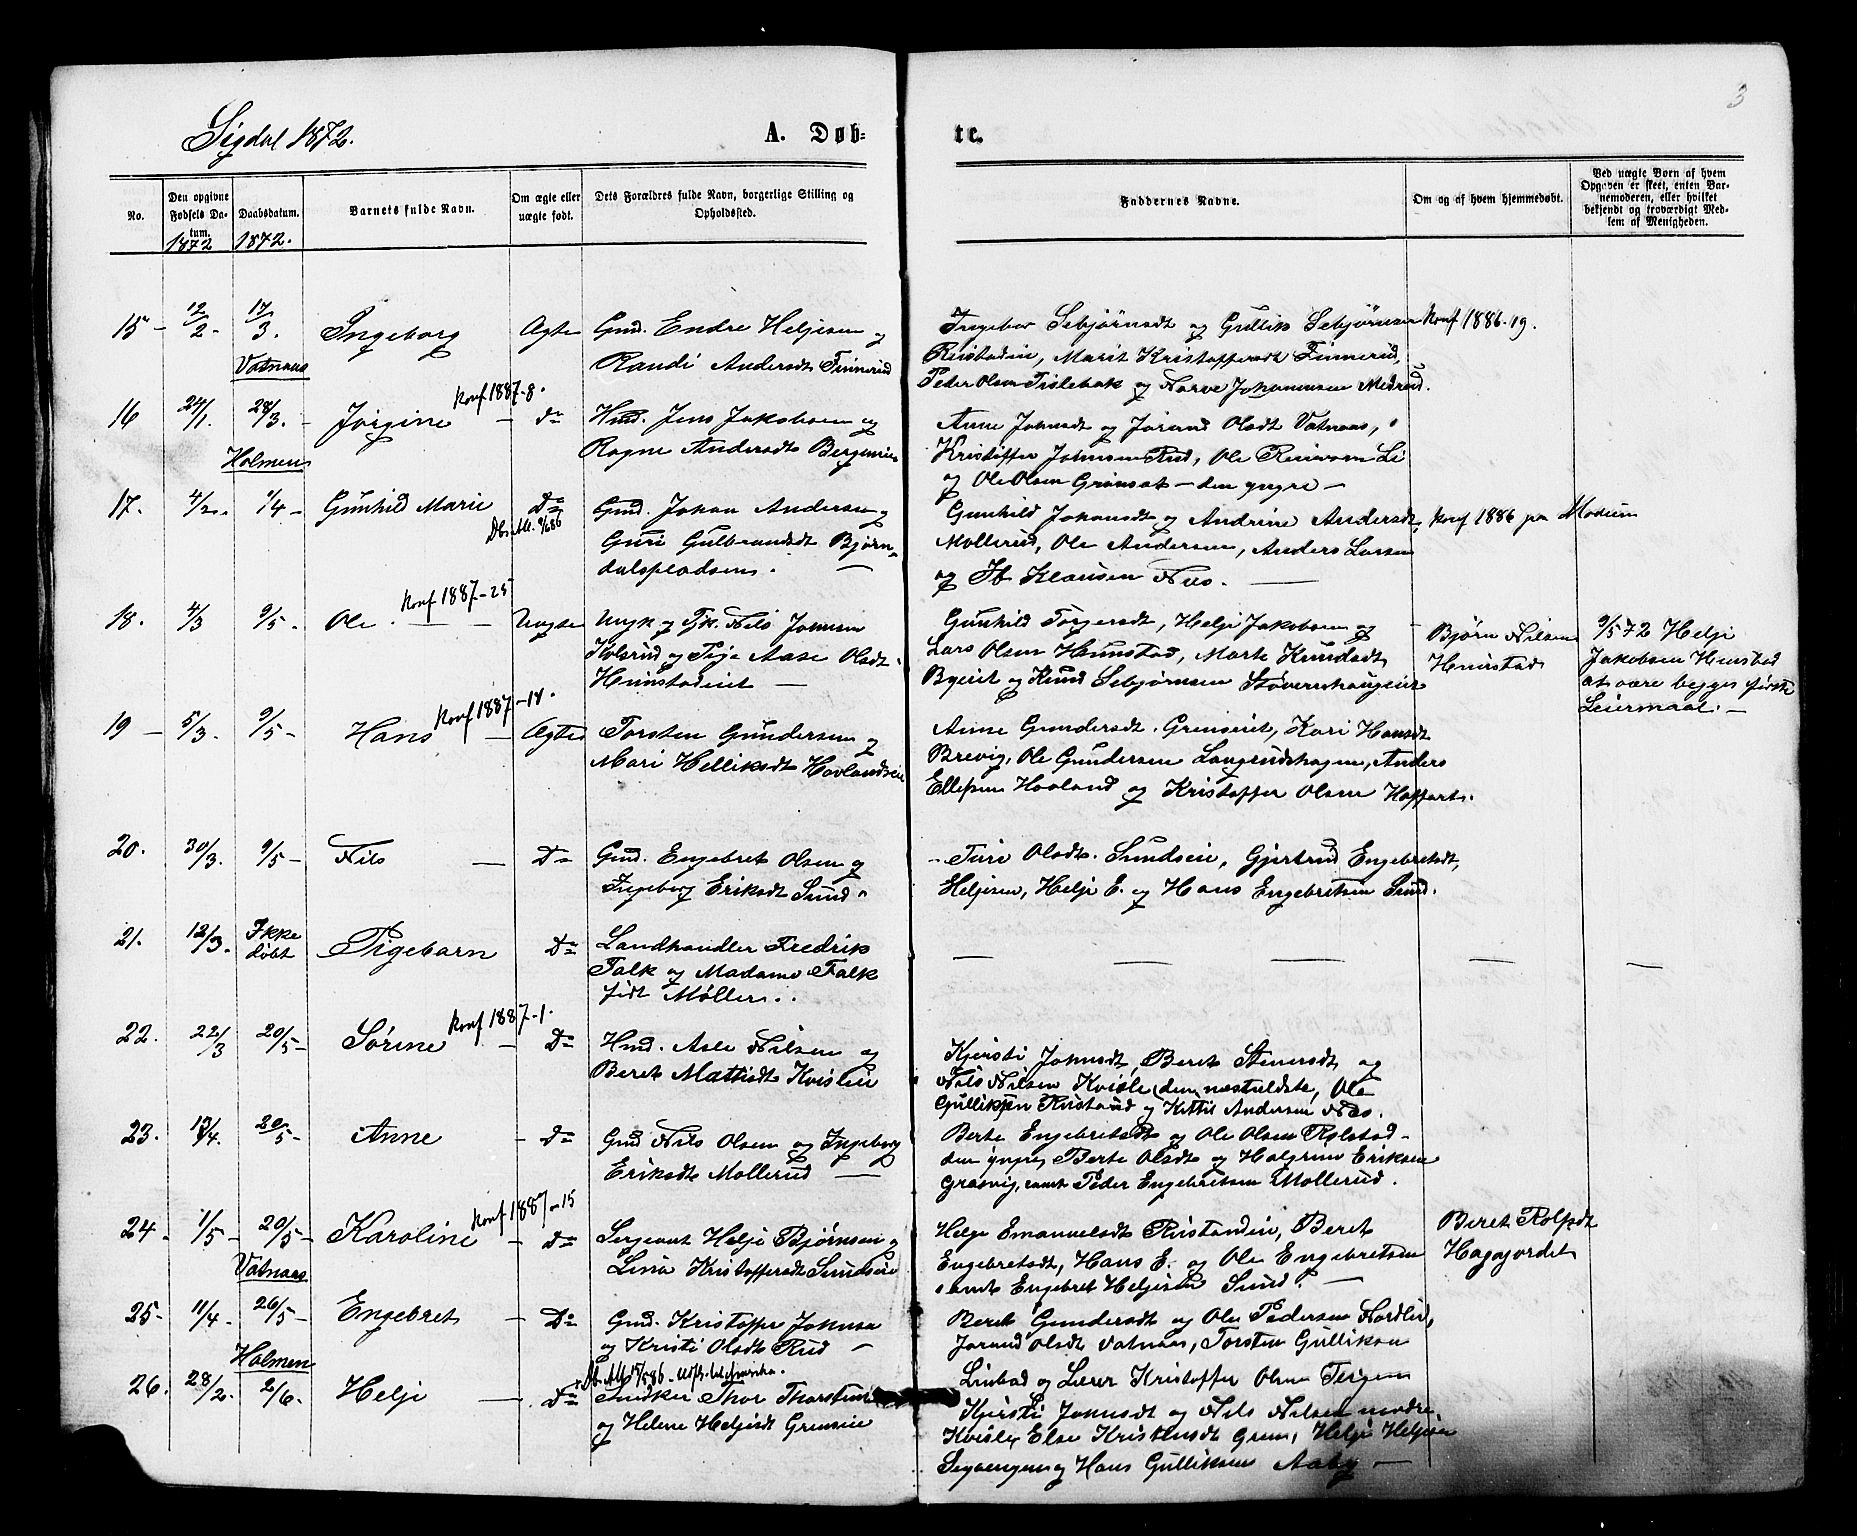 3
Sigdal 1872.
A. Døb-
te.
No.
Den opgivne Fødsels Datum.
1872
Daabsdatum.
1872.
Barnets fulde Navn.
Om ægte eller uægte født.
Dets Forældres fulde Navn, borgerlige Stilling og Opholdssted.
Faddernes Navne.
Om og af hvem hjemmedøbt.
Ved uægte Børn af hvem Opgaven er skeet, enten Barnemoderen, eller hvilket bekjendt og troværdigt Medlem af Menigheden.
15 - 12/2 - 17/3. Ingeborg Ægte Gmd. Endre Heljesen og
Randi Andersdt Finnerud
Ingebor Sebjørnsdt og Gullik Sebjørnsen
Ristadeie, Marit Kristoffersdt Finnerud,
Peder Olsen Tislebak og Narve Johannesen Medrud.
Konf 1886-19.
Vatnaas
16 24/1. 28/3. - Jørgine - do Hmd. Jens Jakobsen og
Konf 1887-8.
Ragne Andersdt Bergeneie
Anne Johnsdt og Jørand Olsdt Vatnaas,
Kristoffer Johnsen Rud, Ole Reiersen Li
og Ole Olsen Grønset - den yngre -
Holmen
17. 4/2. 1/4 - Gunhild Marie Do Gmd. Johan Andersen og
Guri Gulbrandsdt Bjørn-
dalspladsen. -
Gunhild Johansdt og Andrine Andersdt,
Mollerud, Ole Andersen, Anders Larsen
og Ib Klausen Næs. -
Konf 1886 paa Modum
18. 4/3 9/5 - Ole - - Uægte Ungk og Tjk. Nils Johnsen
Konf 1887-25
Kolsrud og Pige Aase Olsdt
Hunstadeiet -
Gunhild Torgersdt, Helje Jakobsen og
Lars Olsen Hunstad, Marte Knudsdt
Bøeiet og Knud Sebjørnsen Støvernhaugeiet
Bjørn Nilsen
Hunstad
9/5 72 Helje
Jakobsen Hunstad
at være begges første
Leiermaal. -
19 - 5/3. 9/5 - Hans - Ægte Torsten Gundersen og
Konf 1887-18.
Mari Helliksdt Hovlandseie
Anne Gundersdt. Grenseiet, Kari Hansdt
Brevig, Ole Gundersen Langrudshagen, Anders
Ellefsen Hovland og Kristoffer Olsen Hoffart.
20. 30/3. 9/5 - Nils - Do Gmd. Engebret Olsen og
Ingeborg Eriksdt Sund.
- Turi Olsdt. Sundseie, Gjertrud Engebretsdt,
Heljesen, Helje E. og Hans Engebretsen Sund.
21. 12/3. Ikke
døbt
Pigebarn Do Landhandler Fredrik
Falk og Madame Falk
født Møller..
- - - - -
22. 22/3 20/5 - Sørine - Do Hmd. Asle Nilsen og
Konf 1887-1.
Beret Mattisdt Kvisleie
Kjersti Johnsdt, Beret Stenersdt og
Nils Nilsen Kvisle (den næstældste, Ole
Gulliksen Ristand og Kittil Andersen Næs.
23. 13/4. 20/5 - Anne - Do Gmd Nils Olsen og Ingeborg
Eriksdt Mollerud -
Berte Engebretsdt og Ole Olsen Rolstad -
den yngre, Berte Olsdt og Halgrim Eriksen
Grasvig, samt Peder Engebretsen Mollerud.
24 - 1/5 - 20/5 - Karoline - do Sergeant Helje Bjørnsen og
Konf 1887-15
Lina Kristoffersdt Sundseie
Helge Emanuelsdt Ristandeie, Beret
Engebretsdt, Hans E. og Ole Engebretsen
samt Engebret Heljesen Sund. -
Beret Rolfsdt
Hagajordet
Vatnaas
25 - 11/4 - 26/5 - Engebret - Do Gmd. Kristoffer Johnsen
og Kristi Olsdt Rud -
Beret Gundersdt og Ole Pedersen Nordlid,
Jørand Olsdt Vatnaas, Torsten Gulliksen
Linbad og Lærer Kristoffer Olsen Teigen
Holmen
26. 28/2. 2/6. Helje - Do Snedker Thor Thorstensen
og Helene Heljesdt Grenseie
Kjersti Johnsdt og Nils Nilsen nordre
Kvisle, Else Kristensdt Gren, Helje Heljesen
og Hans Gulliksen Aaby -